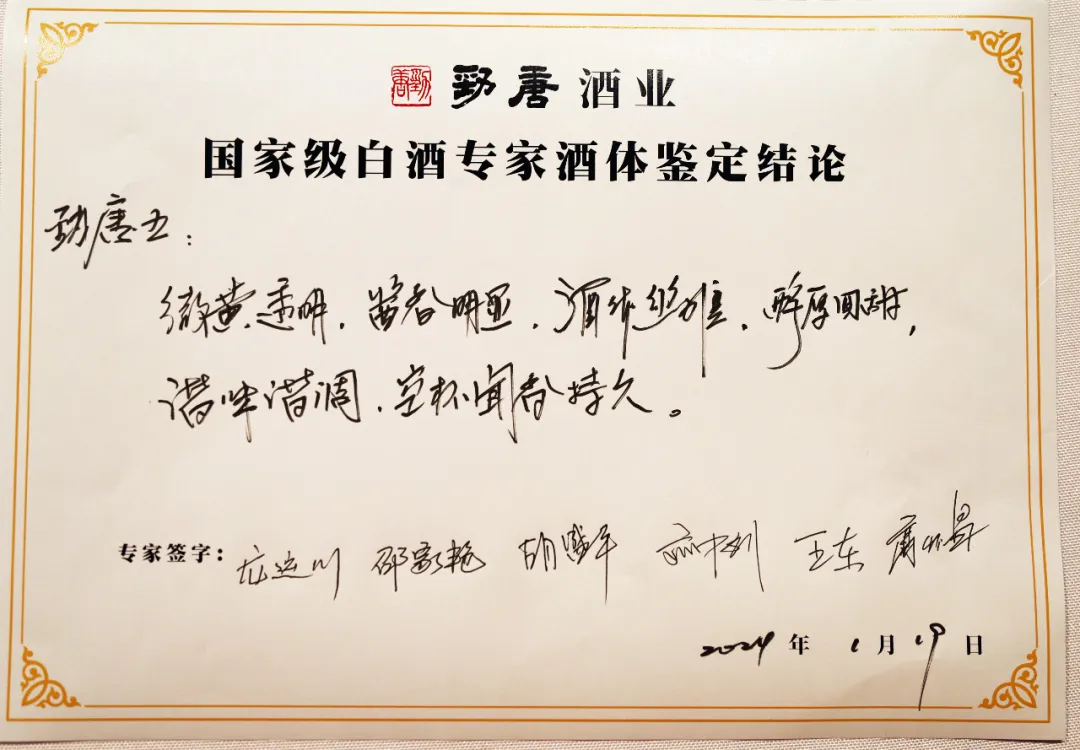 劲唐 勁唐酒业
国家级白酒专家酒体鉴定结论
劲唐五：
微黄透明，酱香明显，酒体幽雅，醇厚回甜，
谐味谐调，空杯闻香持久。
专家签字： 邵家艳 胡盛平 王东
2024年1月19日